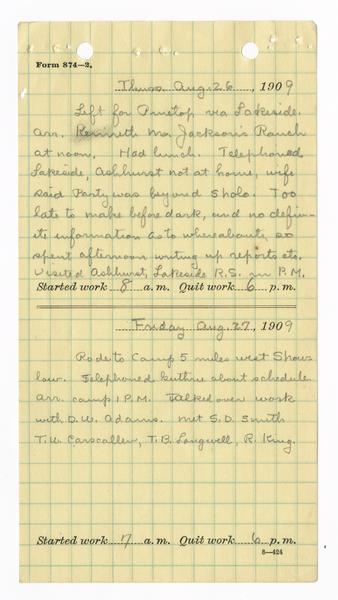 Form 874—2.
Thurs Aug. 26, 1909
Left for Pinetop via Lakeside.
arr. Kenneth Mc. Jackson's Ranch
at noon. Had lunch. Telephoned
Lakeside, Ashhurst not at home, wife
said Party was beyond Sholo. Too
late to make before dark, and no defin-
ite information as to whereabouts, so
spent afternoon writing up reports etc.
Visited Ashhurst, Lakeside R.S. in P.M.
Started work 8 a.m. Quit work 6 p.m.
Friday Aug. 27, 1909
Rode to Camp 5 miles west Show
low. Telephoned Guthrie about schedule.
arr. camp 1 P.M. Talked over work
with D.W. Adams. met S.D. Smith
T.W. Carscallen, T.B. Longwell, R. King.
Started work 7 a.m. Quit work 6 p.m.
8—424